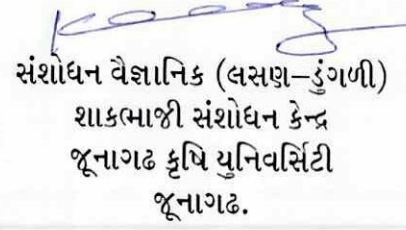 સંશોધન વૈજ્ઞાનિક (લસણ–ડુંગળી)
શાકભાજી સંશોધન કેન્દ્ર
જૂનાગઢ કૃષિ યુનિવર્સિટી
જૂનાગઢ.